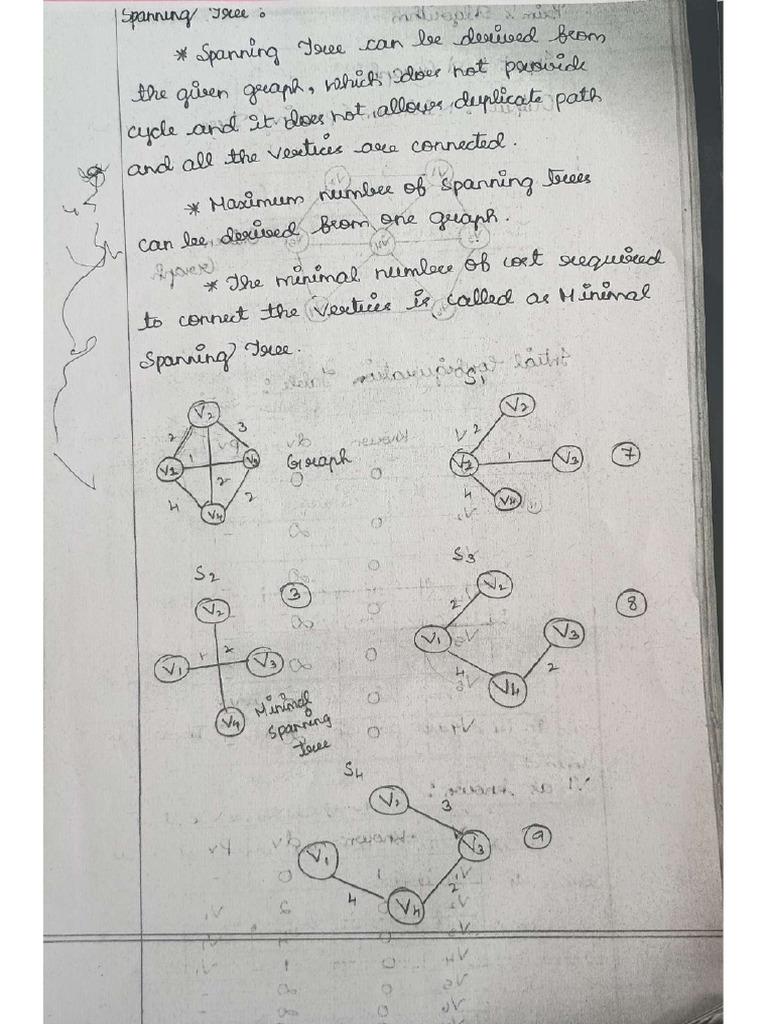 Spanning Tree :
* Spanning Tree can be derived from
the given graph, which does not provide
cycle and it does not allows duplicate path
and all the vertices are connected.
* Maximum number of spanning trees
can be derived from one graph.
* The minimal number of cost required
to connect the vertices is called as Minimal
Spanning Tree.
S1
V2
2 3
V2 1 V3 Graph
2
4 2
V4
V2
2
V2 1 V3 7
4
V4
S2
V2 3
V1 1 2 V3
V4 Minimal
Spanning
Tree
S3
V2
2 8
V1 V3
4 2
V4
S4
V2 3
V1 V3 9
4 2
V4